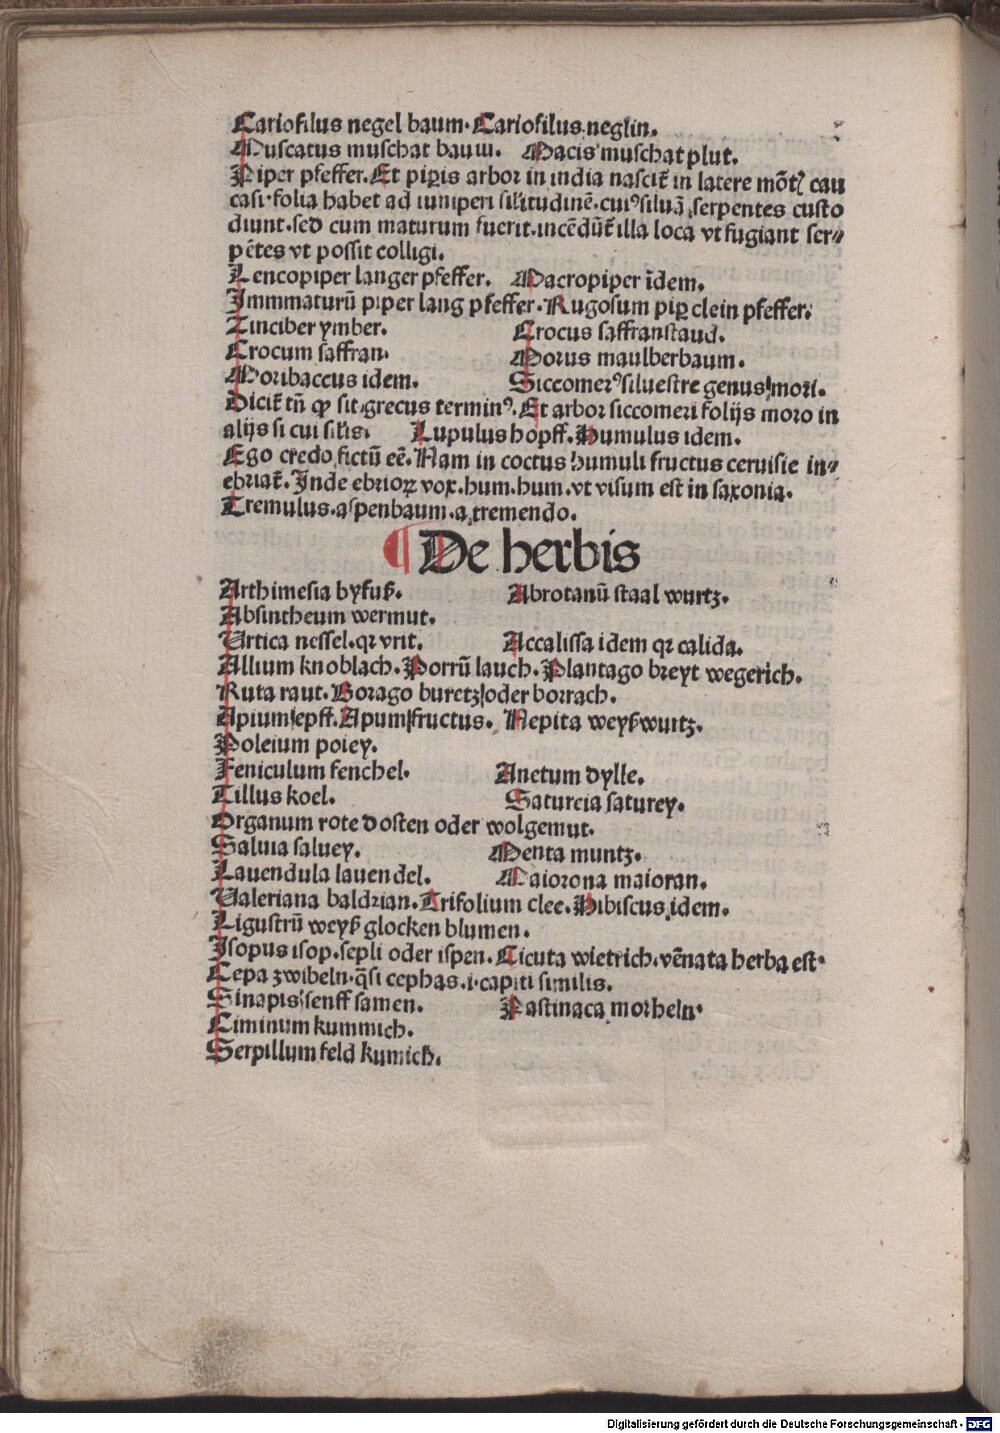 Cariofilus negel baum. Cariofilus neglin.
Muscatus muschat baum. Macis muschat plut.
Piper pfeffer. Et piꝑis arbor in india nascit̃ in latere mõtꝭ cau
casi. folia habet ad iuniperi sil'itudinẽ. cuiꝰ siluã serpentes custo
diunt. sed cum maturum fuerit. incẽdũt̃ illa loca vt fugiant ser⸗
pẽtes vt possit colligi.
Lencopiper langer pfeffer. Macropiper ĩdem.
Immmaturũ piper lang pfeffer. Rugosum piꝑ clein pfeffer.
Zinciber ymber. Crocus saffranstaud.
Crocum saffran. Morus maulberbaum.
Moribaccus idem. Siccomerꝰ siluestre genus mori.
Dicit̃ tñ ꝙ sit grecus terminꝰ. Et arbor siccomeri folijs moro in
alijs si cui sil'is. Lupulus hopff. Humulus idem.
Ego credo fictũ eẽ. Nam in coctus humuli fructus ceruisie in⸗
ebriat̃. Inde ebrioꝝ vox. hum. hum. vt visum est in saxonia.
Tremulus. aspenbaum. a tremendo.
¶ De herbis
Arthimesia byfuß. Abrotanũ staal wurtz.
Absintheum wermut.
Vrtica nessel. qꝛ vrit. Accalissa idem qꝛ calida.
Allium knoblach. Porrũ lauch. Plantago breyt wegerich.
Ruta raut. Borago buretz oder borrach.
Apium epff. Apum fructus. Nepita weyßwurtz.
Poleium poley.
Feniculum fenchel. Anetum dylle.
Tillus koel. Saturcia saturey.
Organum rote dosten oder wolgemut.
Saluia saluey. Menta muntz.
Lauendula lauendel. Maiorona maioran.
Valeriana baldrian. Trifolium clee. Hibiscus idem.
Ligustrũ weyß glocken blumen.
Isopus isop. sepli oder ispen. Cicuta wietrich. vẽnata herba est.
Cepa zwibeln. q̃si cephas. i. capiti similis.
Sinapis senff samen. Pastinaca morheln.
Ciminum kummich.
Serpillum feld kumich.
Digitalisierung gefördert durch die Deutsche Forschungsgemeinschaft - DFG